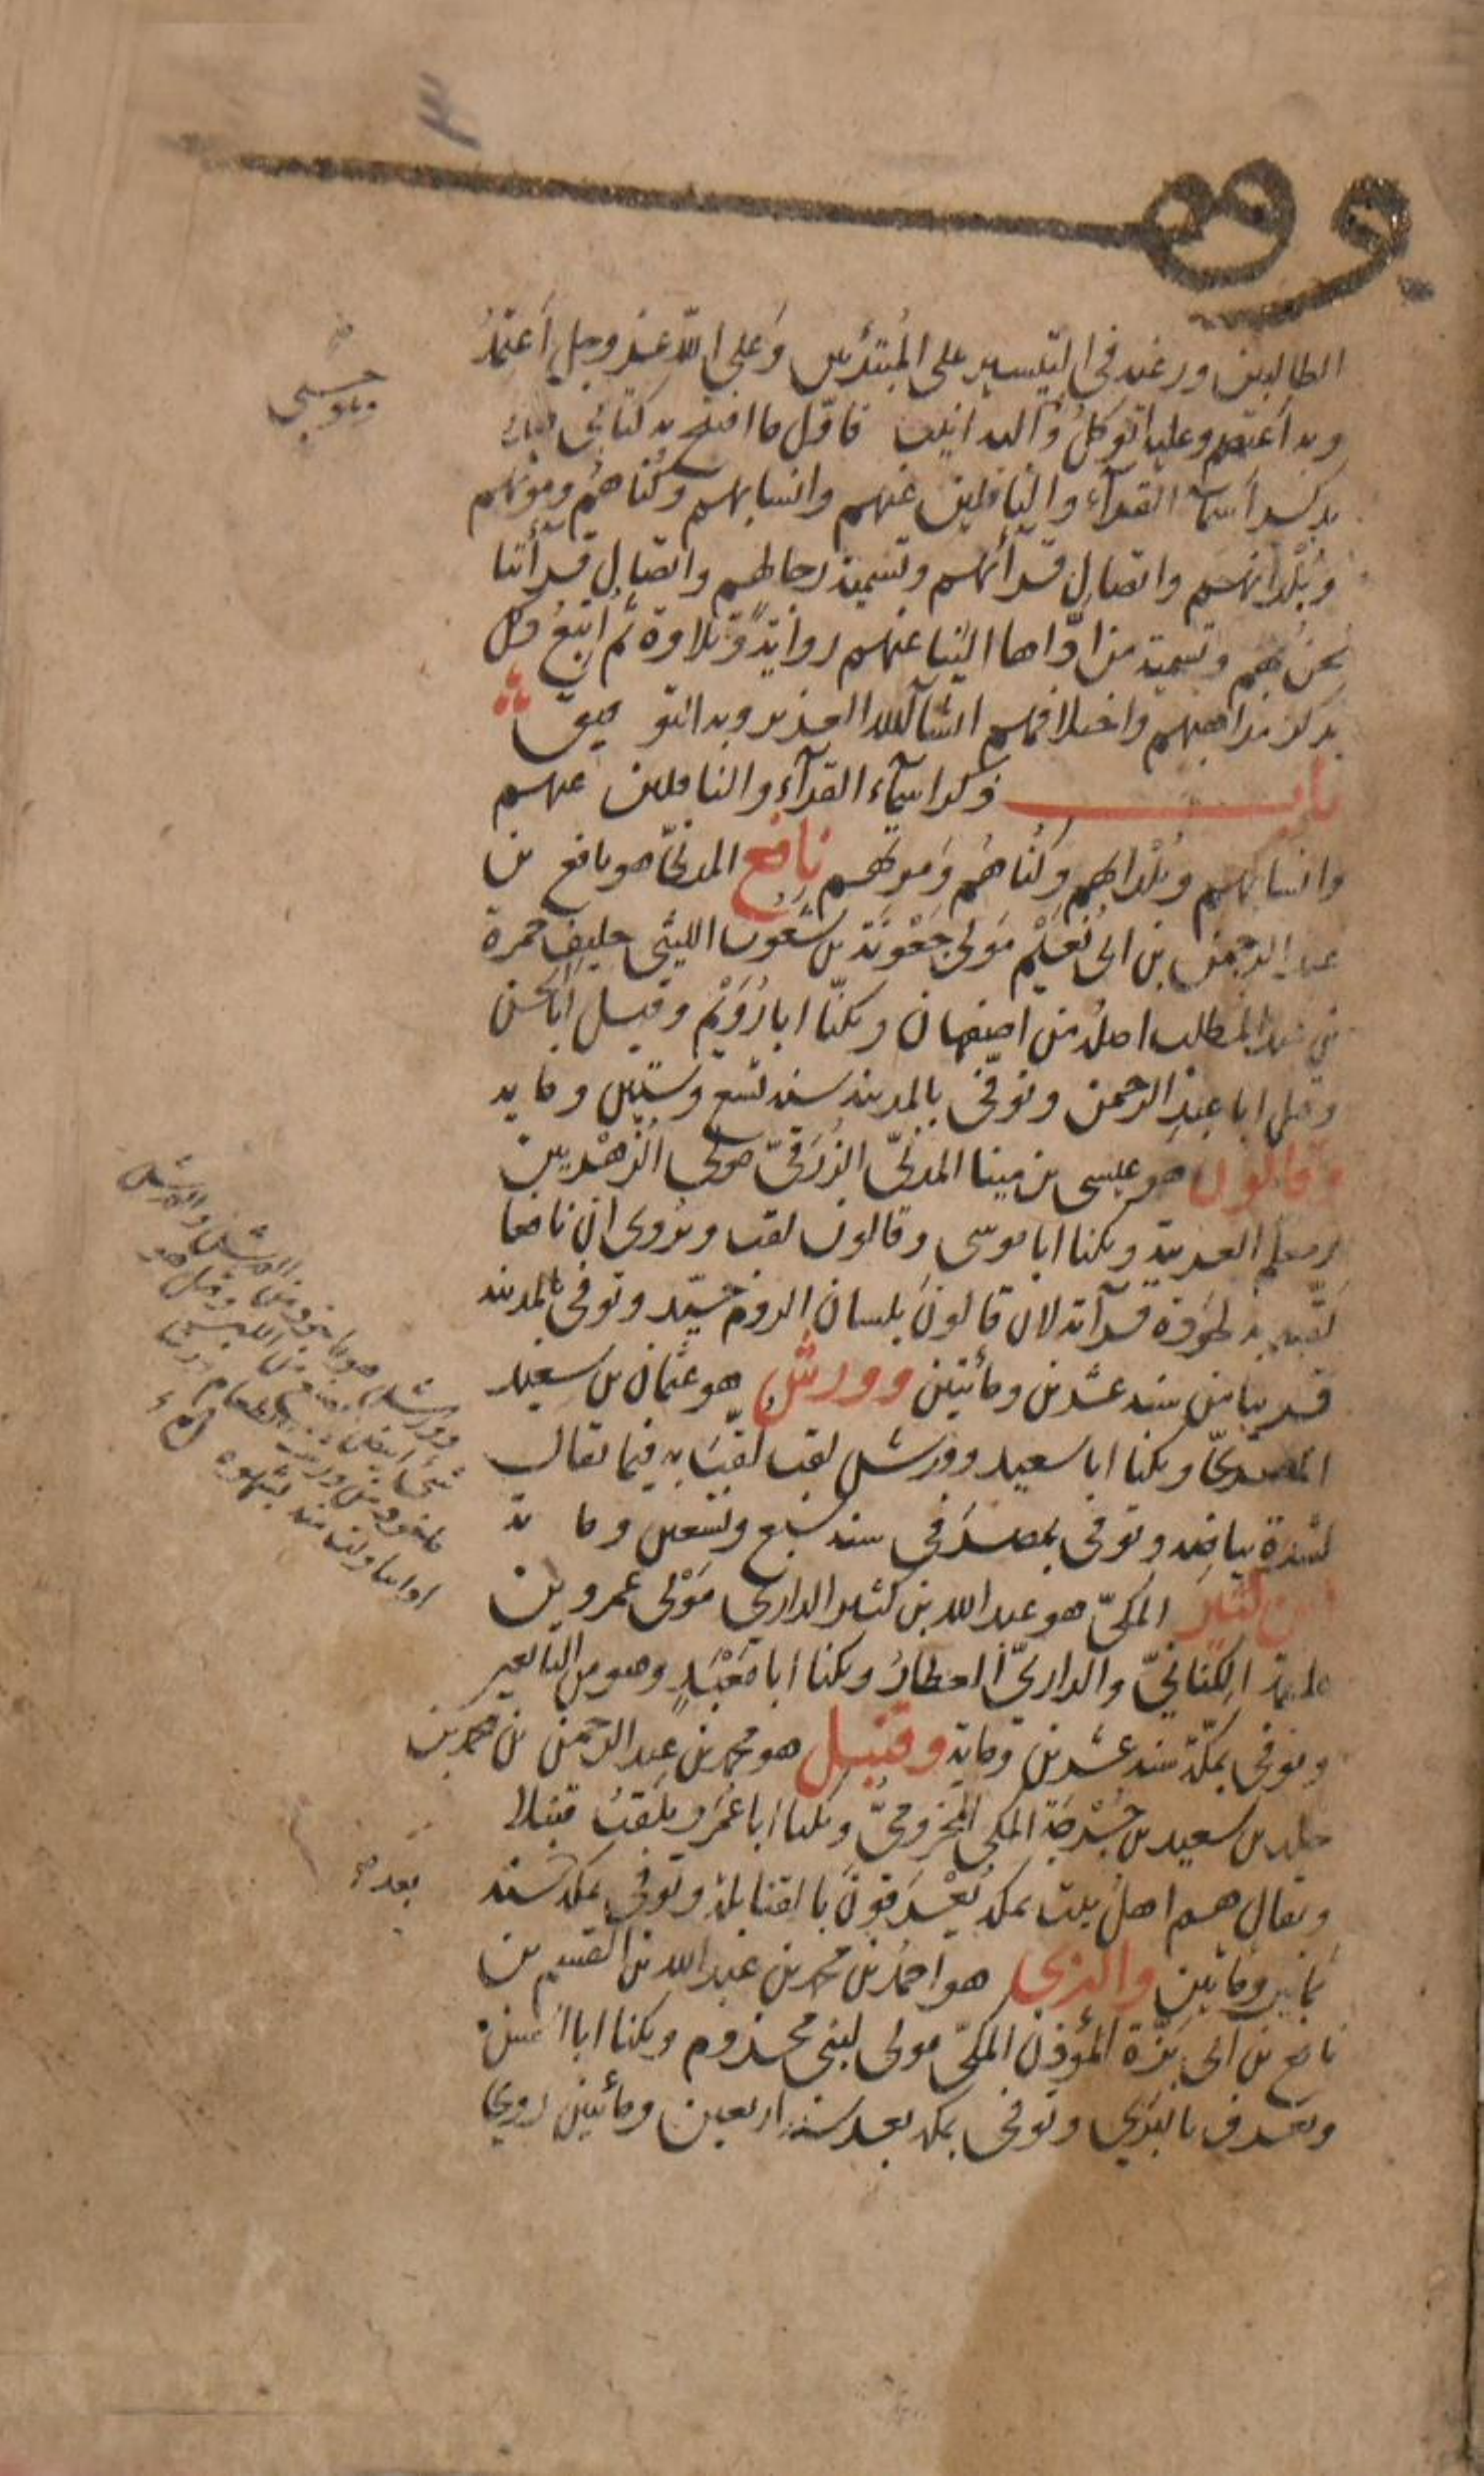 وقف
الطالبين ورغبة في التيسير على المبتدئين وَعلى الله عز وجل أعتمدُ
وبه أعتصم وعليه اتوكلُ وَاليه انيب فاوّل ما افتتح به كتابي هذا
حسبي
بذكر أسماء القرآء والناقلين عنهم وانسابهم وكُناهُم وموتهم
وبُلْدانهم واتصال قرآئتهم وتسمية رجالهم واتصال قرأتنا
نحن بهم وتسمية من ادّاها الينا عنهم روايةً وتلاوة ثم أتبعُ ذلك
بذكر مذاهبهم واختلافهم انشآ الله العزيز وبه التوفيق
باب ذكر اسمآء القرآء والناقلين عنهم
وانسابهم وبُلْدانهم وكُناهُم وَموتهم نافع المدنىّ هو نافع بن
عبد الرحمن بن ابى نُعَيْم مَولى جَعْوَنَة بن شَعُوب الليثى حليف حمزة
بن عبد المطلب اصلُه من اصفهان ويكنّا ابا رُوَيْم وقيل ابا الحسن
وقيل ابا عبد الرحمن وتوفّى بالمدينة سنة تسع وستين ومايه
وقالون هو عيسى بن مينا المدنىّ الزُرَقىّ مولى الزُهْريين
ومعلم العربية ويكنا ابا موسى وقالون لقب ويُروى ان نافعا
لقّبه به لجودة قرآته لان قالون بلسان الروم جيّد وتوفى بالمدينه
قريبا من سنة عشرين ومأئتين وورش هو عثمان بن سعيد
المصرىّ ويكنا ابا سعيد وورش لقب لُقّبَ به فيما يقال
لشدة بياضه وتوفى بمصر فى سنة سبع وتسعين وماية
ابن كثير المكىّ هو عبد الله بن كثير الدارى مَوْلى عمرو بن
علقمة الكِنانىّ والدارىّ العطارُ ويكنا ابا مَعْبَدٍ وهو من التابعين
وتوفى بمكّة سنة عشرين وماية وقنبل هو محمد بن عبد الرحمن بن محمد بن
خلد بن سعيد بن جُرْجَة المكى المخزومىُّ ويكنا ابا عُمَر ويُلَقبُ قنبلا
ويقال هم اهل بيت بمكة يُعْرَفونَ بالقنابلة وتوفى بمكة سنة
بعد
ثمانين ومأئتين والبزى هو احمدُ بن محمد بن عبد الله بن القسم بن
نافع بن ابى بَزّة المُؤذن المكىّ مولى لبنى مخزوم ويكنا ابا الحسن
ويعرف بالبَزى وتوفى بمكه بعد سنة اربعين ومأئتين روى